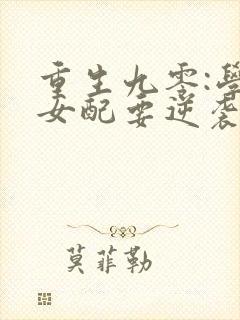 重生九零:學
女配要逆袭
莫菲勒